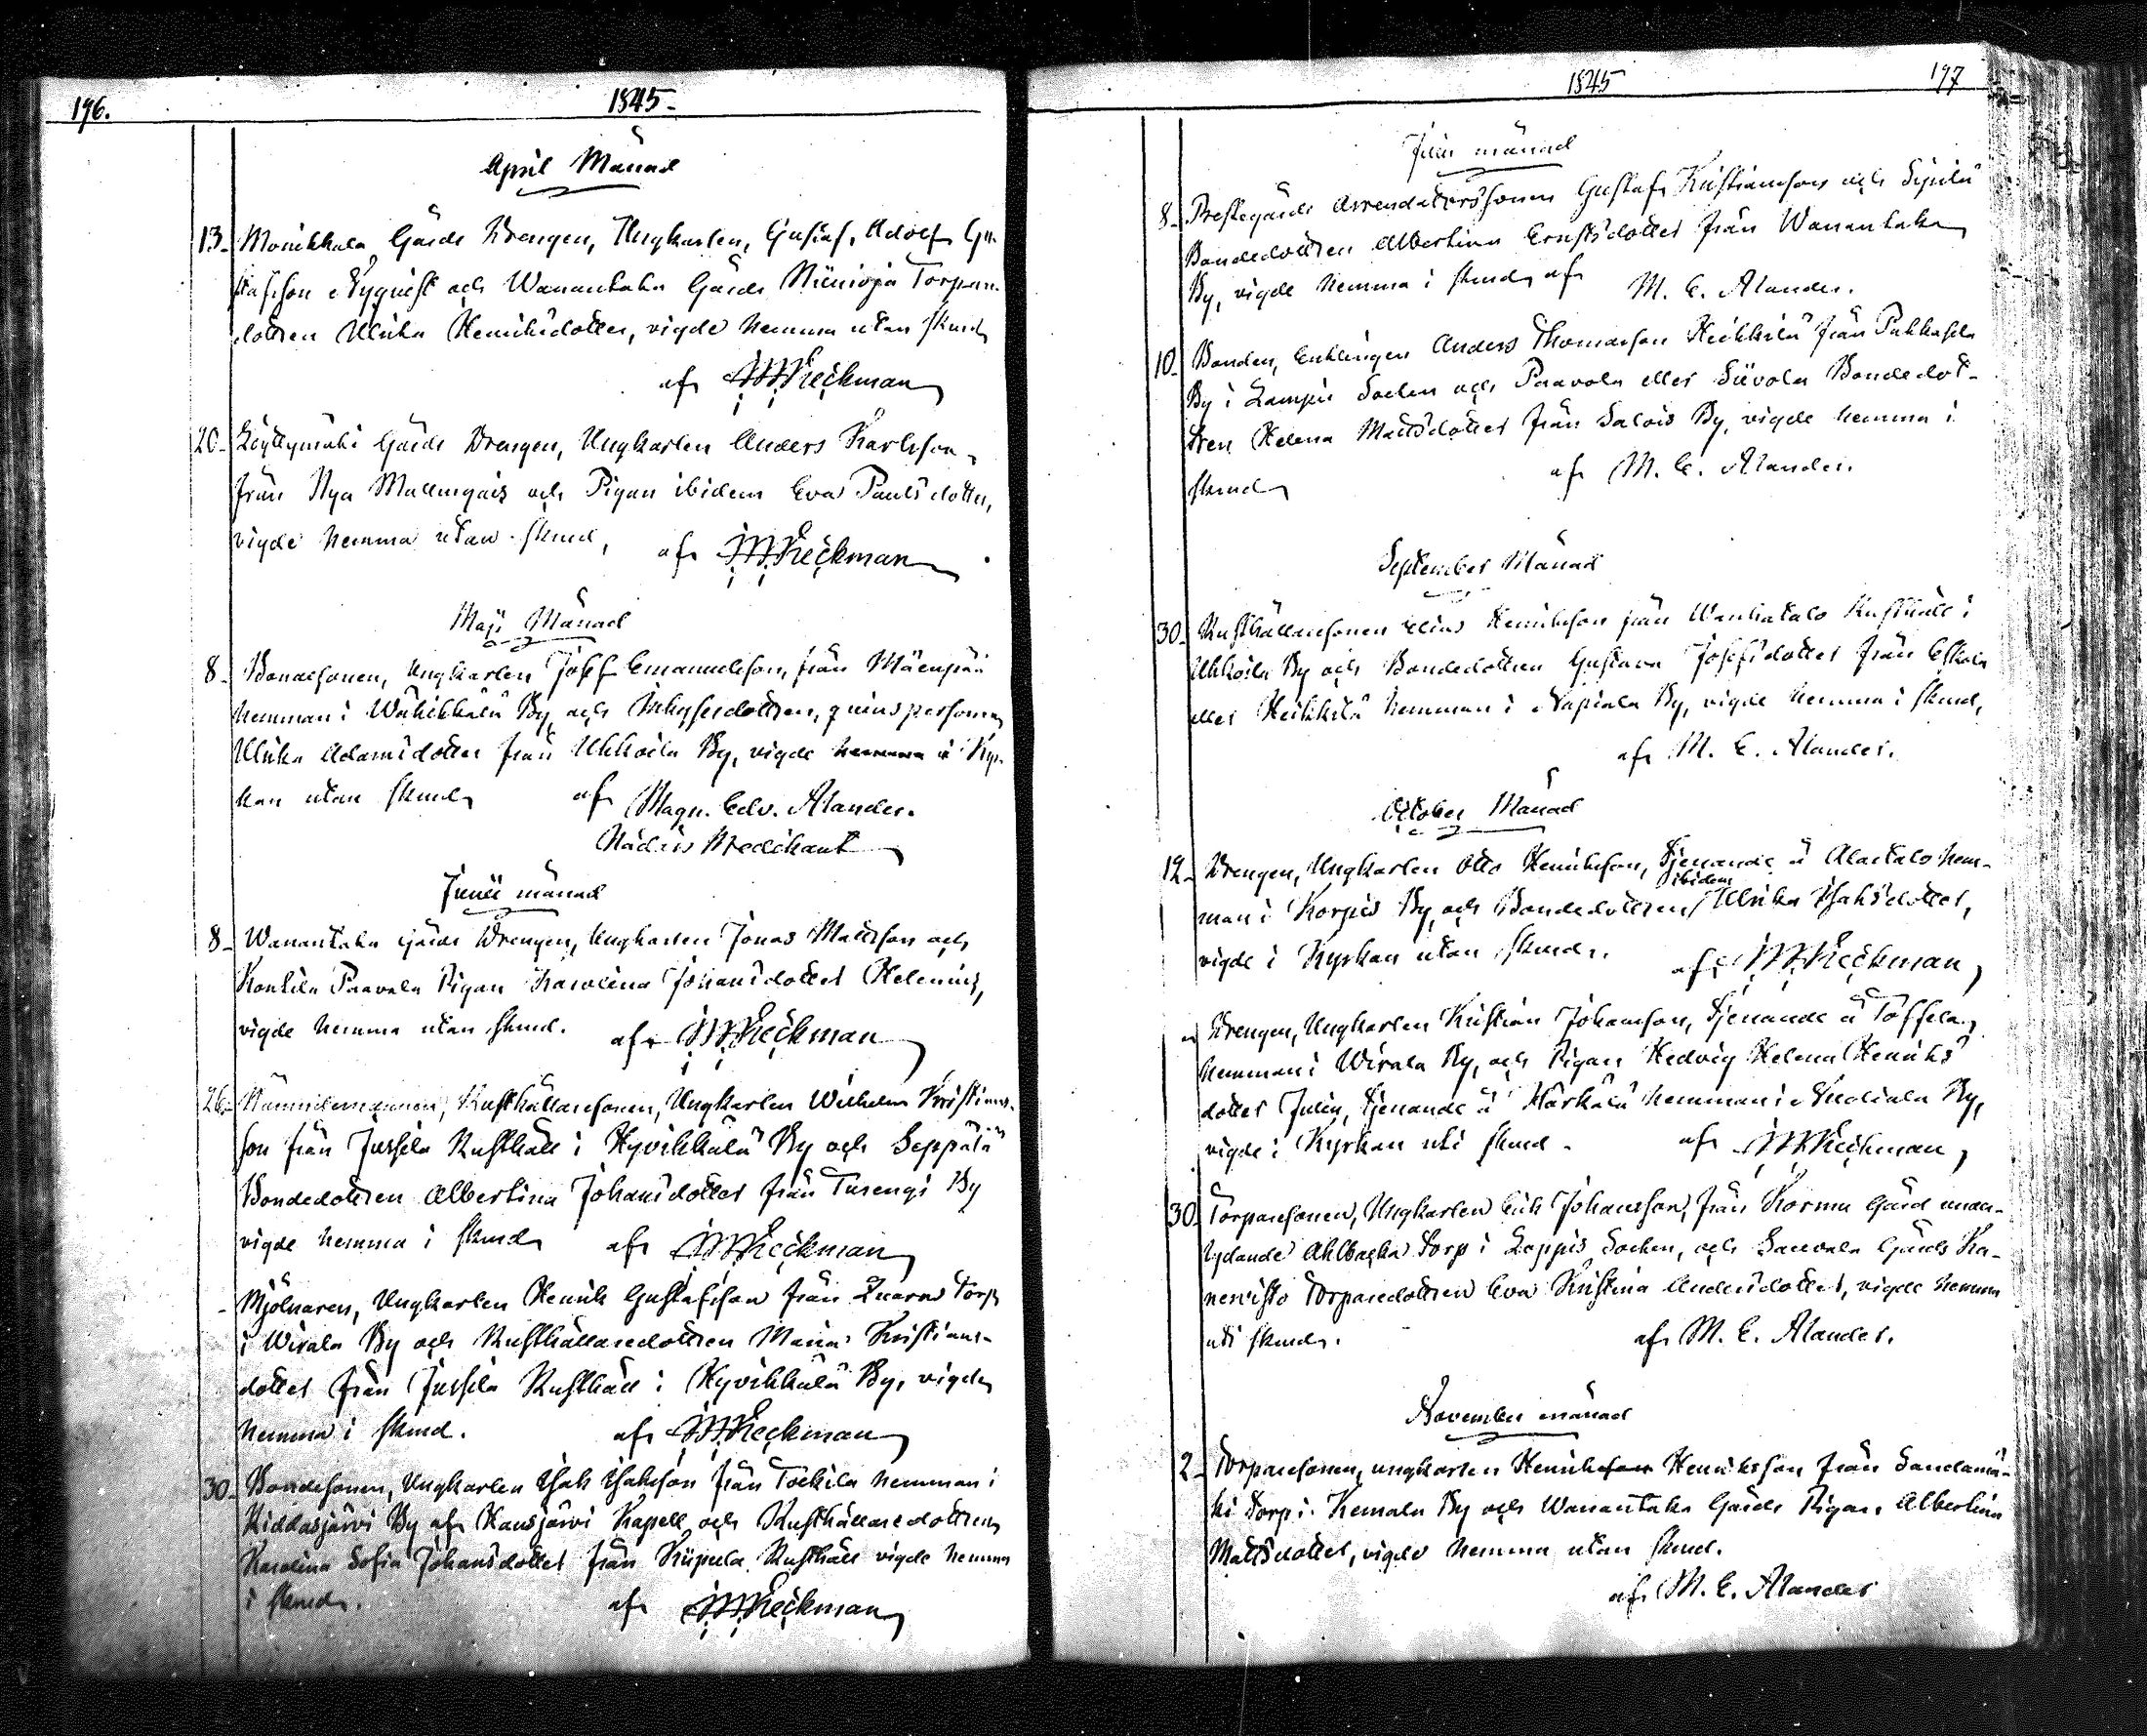 196.
1845.
April Månad
13. Monikkala Gårds Drengen, Ungkarlen, Gustaf Adolf Gu-
stafsson Nyquist och Wanantaka Gårds Niinioja Torpare-
dottren Ulrika Henriksdotter, vigde hemma utan skrud
af Heckman
20. Löyttymäki Gårds Drengen, Ungkarlen Anders Karlsson
från Nya och Pigan ibidem Eva Paulsdotter,
vigde hemma utan skrud, af Heckman
Maji Månad
8. Bondesonen, Ungkarlen Josef Emanuelsson, från Mäenpää
hemman i Wähikkälä By och Inhysesdottren, qvinspersonen
Ulrika Adamsdotter från Uhkoila By, vigde hemma i Kyr-
kan utan skrud af Magn. Edv. Alander.
Nådårs Predikant
Junii månad
8. Wanantaka Gårds Drengen, Ungkarlen Jonas Mattsson och
Kontila Paavala Pigan Karolina Johansdotter Helenius,
vigde hemma utan skrud. af Heckman
26. Nämndemannen, Rusthållaresonen, Ungkarlen Wilhelm Kristians-
son från Jussila Rusthåll i Hyvikkälä By och Seppälä
Bondedottren Albertina Johansdotter från Turengi By
vigde hemma i skrud af Heckman
- Mjölnaren, Ungkarlen Henrik Gustafsson från Qvarns Torp
i Wirala By och Rusthållaredottren Maria Kristians-
dotter från Jussila Rusthåll i Hyvikkälä By, vigde
hemma i skrud. af Heckman
30. Bondesonen, Ungkarlen Isak Isaksson från hemman i
Hiddasjärvi By af Hausjärvi Kapell och Rusthållaredottren
Karolina Sofia Johansdotter från Kiipula Rusthåll vigde hemma
i skrud. af Heckman
1845
197
månad
8. Prestegårds Arrendatorssonen Gustaf Kristiansson och Sipilä
Bondedottren Albertina Ernstsdotter från Wanantaka
By, vigde hemma i skrud af M. E. Alander.
10. Bonden, Enklingen Anders Thomasson Heikkilä från
By i Lampis Socken och Paavola eller Siivola Bondedot-
tren Helena Mattsdotter från Salois By, vigde hemma i
skrud af M. E. Alander.
September Månad
30. Rusthållaresonen Elias Henriksson från Wanhatalo Rusthåll i
Uhkoila By och Bondedottren Gustava Josefsdotter från Eskola
eller Heikkilä hemman i Napiala By, vigde hemma i skrud,
af M. E. Alander.
October Månad
12. Drengen, Ungkarlen Otto Henriksson, Tjenande å Alastalo hem-
man i Korpis By och Bondedottren ibidem Ulrika Isaksdotter,
vigde i Kyrkan utan skrud. af Heckman
" Drengen, Ungkarlen Kristian Johansson, Tjenande å Töffela
hemman i Wirala By, och Pigan Hedvig Helena Henriks-
dotter Julin, Tjenande å Härkälä hemman i By,
vigde i Kyrkan uti skrud. af Heckman
30. Torparesonen, Ungkarlen Erik Johansson, från Kormu Gård under-
lydande Ahlbacka Torp i Loppis Socken, och Sauvala Gårds Ka-
nervisto Torparedottren Eva Kristina Andersdotter, vigde hemma
uti skrud. af M. E. Alander.
November månad
2. Torparesonen, ungkarlen Henriksson Henriksson från Sandamä-
ki Torp i Hemala By och Wanantaka Gårds Pigan, Albertina
Mattsdotter, vigde hemma utan skrud.
af M. E. Alander